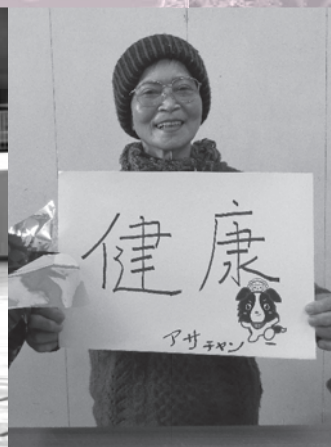 健康
アサチャン